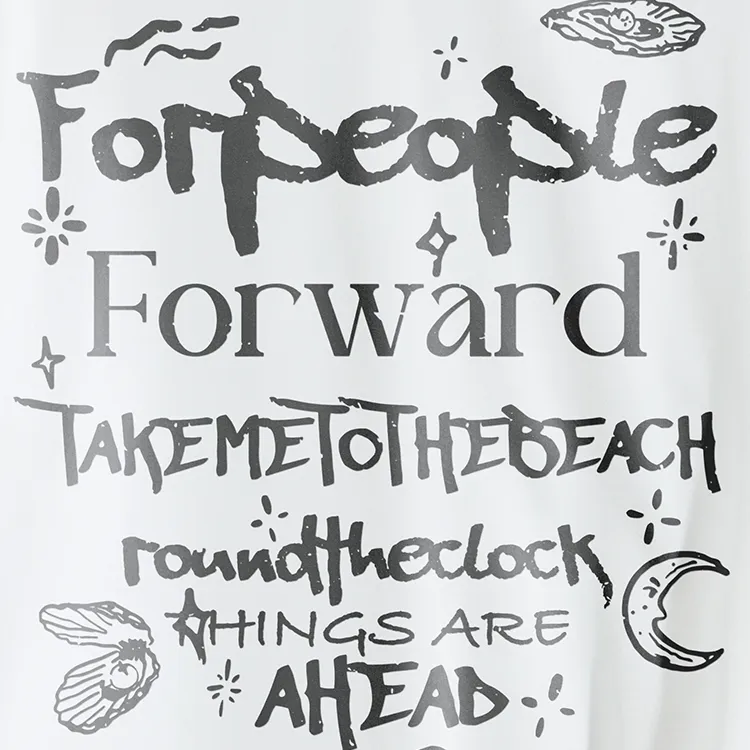 Forpeople
Forward
TAKEMETOTHEBEACH
roundtheclock
THINGS ARE
AHEAD